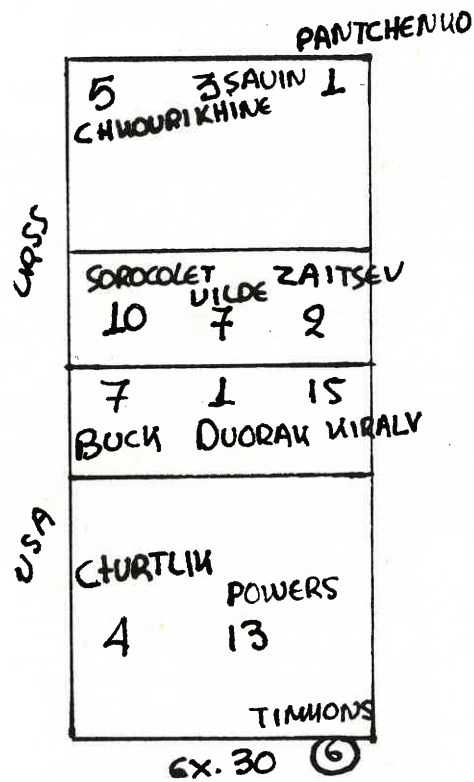 PANTCHENKO
5 3 SAVIN 1
CHKOURIKHINE
URSS
SOROCOLET ZAITSEV
VILDE
10 7 2
7 1 15
BUCK DVORAK KIRALY
USA
CTURTLIK
POWERS
4 13
TIMMONS
6
EX. 30